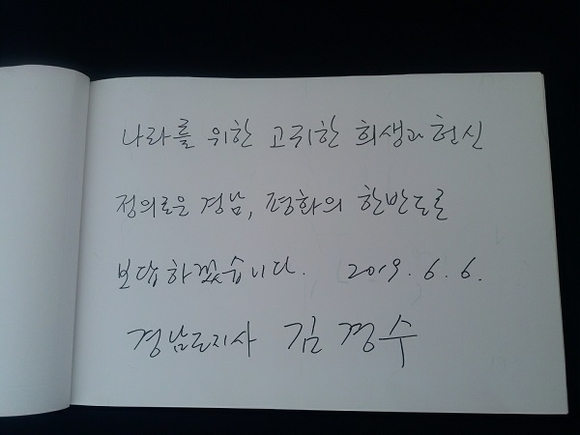 나라를 위한 고귀한 희생과 헌신
정의로운 경남, 평화의 한반도로
보답하겠습니다. 2019. 6. 6.
경남도지사 김경수